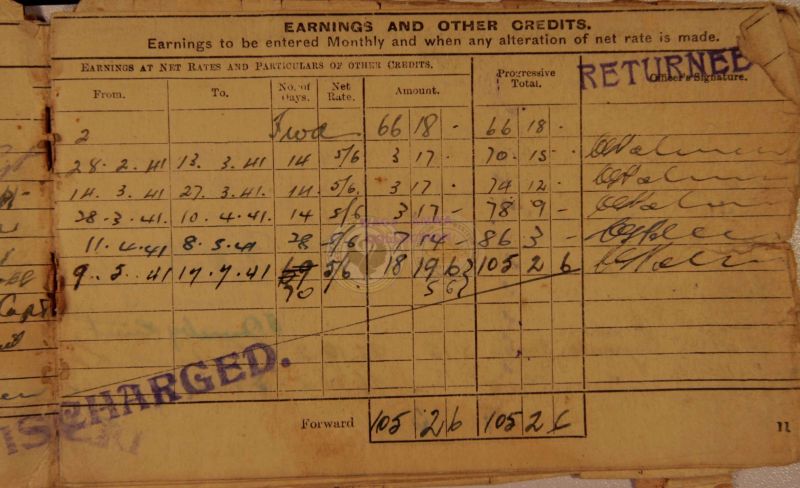 EARNINGS AND OTHER CREDITS.
Earnings to be entered Monthly and when any alteration of net rate is made.
EARNINGS AT NET RATES AND PARTICULARS OF OTHER CREDITS.
Progressive Total.
Officer's Signature.
RETURNED
From. To. No. of Days. Net Rate. Amount.
2 Fwd 66 18 - 66 18 -
28. 2. 41 13. 3. 41 14 5/6 3 17 - 70. 15 -
14. 3. 41 27. 3. 41. 14. 5/6. 3 17 . 74 12 .
28. 3. 41. 10. 4. 41. 14 5/6 3 17 - 78 9 -
11. 4. 41 8. 5. 41 28 5/6 7 14 - 86 3 -
9. 5. 41 17. 7. 41 5/6 18 19 6 105 2 6
70 5 6
DISCHARGED.
Forward 105 2 6 105 2 6
11